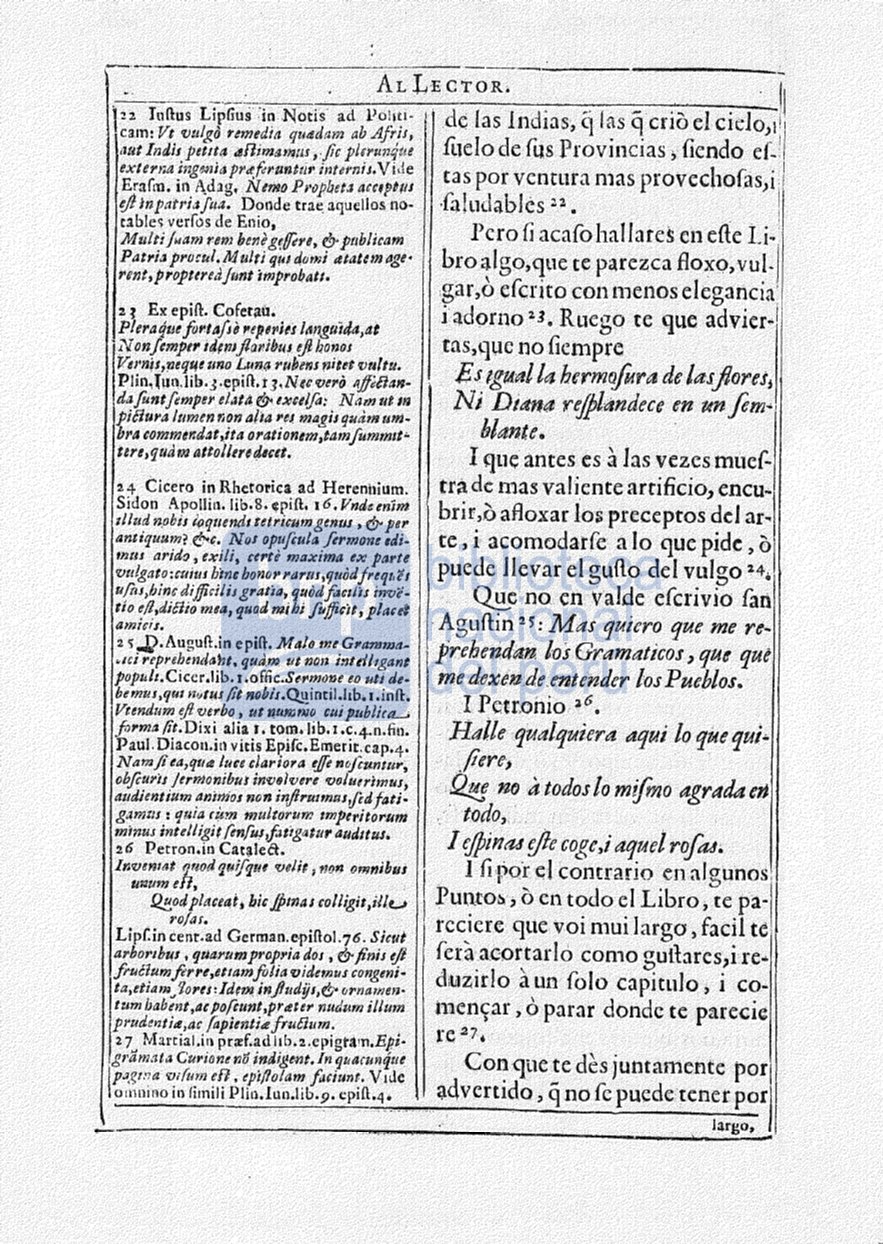 AL LECTOR.
22 Iustus Lipsius in Notis ad Politi-
cam: Vt vulgò remedia quædam ab Afris,
aut Indis petita æstimamus, sic plerunque
externa ingenia præferuntur internis. Vide
Erasm. in Adag. Nemo Propheta acceptus
est in patria sua. Donde trae aquellos no-
tables versos de Enio,
Multi suam rem benè gessere, & publicam
Patria procul. Multi qui domi ætatem age-
rent, proptereà sunt improbati.
23 Ex epist. Cosetau.
Pleraque fortassè reperies languida, at
Non semper idem floribus est honos
Vernis, neque uno Luna rubens nitet vultu.
Plin. Iun. lib. 3. epist. 13. Nec verò affectan-
da sunt semper elata & excelsa: Nam ut in
pictura lumen non alia res magis quàm um-
bra commendat, ita orationem, tam summit-
tere, quàm attollere decet.
24 Cicero in Rhetorica ad Herennium.
Sidon Apollin. lib. 8. epist. 16. Vnde enim
illud nobis loquendi tetricum genus, & per
antiquum? &c. Nos opuscula sermone edi-
mus arido, exili, certè maxima ex parte
vulgato: cuius hinc honor rarus, quòd frequẽs
usus, hinc difficilis gratia, quòd facilis invẽ-
tio est, dictio mea, quod mihi sufficit, placet
amicis.
25 D. August. in epist. Malo me Gramma-
tici reprehendant, quàm ut non intelligant
populi. Cicer. lib. 1. offic. Sermone eo uti de-
bemus, qui notus sit nobis. Quintil. lib. 1. inst.
Vtendum est verbo, ut nummo cui publica
forma sit. Dixi alia 1. tom. lib. 1. c. 4. n. fin.
Paul. Diacon. in vitis Episc. Emerit. cap. 4.
Nam si ea, quæ luce clariora esse noscuntur,
obscuris sermonibus involvere voluerimus,
audientium animos non instruimus, sed fati-
gamus: quia cùm multorum imperitorum
minus intelligit sensus, fatigatur auditus.
26 Petron. in Catalect.
Inveniat quod quisque velit, non omnibus
unum est,
Quod placeat, hic spinas colligit, ille
rosas.
Lips. in cent. ad German. epistol. 76. Sicut
arboribus, quarum propria dos, & finis est
fructum ferre, etiam folia videmus congeni-
ta, etiam flores: Idem in studijs, & ornamen-
tum habent, ac poscunt, præter nudum illum
prudentiæ, ac sapientiæ fructum.
27 Martial. in præf. ad lib. 2. epigram. Epi-
grãmata Curione nõ indigent. In quacunque
pagina visum est, epistolam faciunt. Vide
omnino in simili Plin. Iun. lib. 9. epist. 4.
de las Indias, q̃ las q̃ criò el cielo, i
suelo de sus Provincias, siendo es-
tas por ventura mas provechosas, i
saludables 22.
Pero si acaso hallares en este Li-
bro algo, que te parezca floxo, vul-
gar, ò escrito con menos elegancia
i adorno 23. Ruego te que advier-
tas, que no siempre
Es igual la hermosura de las flores,
Ni Diana resplandece en un sem-
blante.
I que antes es à las vezes mues-
tra de mas valiente artificio, encu-
brir, ò afloxar los preceptos del ar-
te, i acomodarse a lo que pide, ò
puede llevar el gusto del vulgo 24.
Que no en valde escrivio san
Agustin 25: Mas quiero que me re-
prehendan los Gramaticos, que que
me dexen de entender los Pueblos.
I Petronio 26.
Halle qualquiera aqui lo que qui-
siere,
Que no à todos lo mismo agrada en
todo,
I espinas este coge, i aquel rosas.
I si por el contrario en algunos
Puntos, ò en todo el Libro, te pa-
reciere que voi mui largo, facil te
serà acortarlo como gustares, i re-
duzirlo à un solo capitulo, i co-
mençar, ò parar donde te parecie
re 27.
Con que te dès juntamente por
advertido, q̃ no se puede tener por
largo,
biblioteca
nacional
del perú